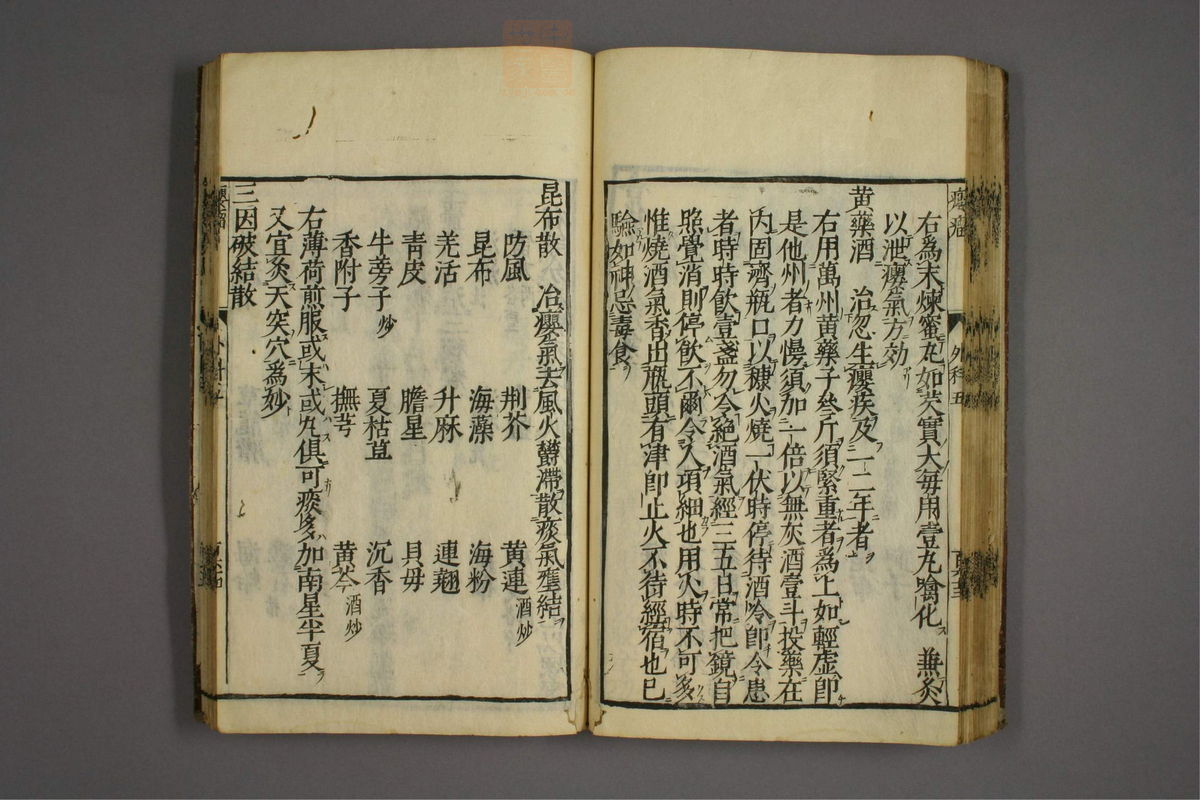 癭瘤
外科五
右為末煉蜜丸如芡實大每用壹丸噙化 兼灸
以泄癭氣方効
黄藥酒 治忽生癭疾及一二年者
右用萬州黄藥子叁斤須緊重者為上如輕虛即
是他州者力慢須加一倍以無灰酒壹斗投藥在
内固濟瓶口以糠火燒一伏時停待酒冷即令患
者時時飲壹盞勿令絕酒氣經三五日常把鏡自
照覺消則停飲不爾令人項細也用火時不可多
惟燒酒氣香出瓶頭有津即止火不待經宿也已
驗如神忌毒食
昆布散 治癭氣去風火欝滯散痰氣壅結
防風 荆芥 黄連酒炒
昆布 海藻 海粉
羌活 升麻 連翹
青皮 膽星 貝母
牛旁子炒 夏枯草 沉香
香附子 撫芎 黄芩酒炒
右薄荷煎服或末或丸俱可痰多加南星半夏
又宜灸天突穴為妙
三因破結散